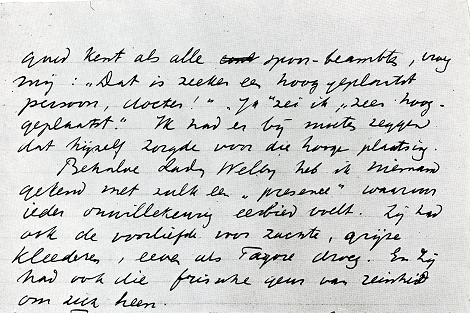 goed kent als alle spoor-beambten, vroeg
mij: „Dat is zeeker een hoog geplaatst
persoon, dokter!" „Ja" zei ik „zeer hoog-
geplaatst." Ik had er bij moeten zeggen
dat hijzelf zorgde voor die hooge plaatsing.
Behalve Lady Welby heb ik niemand
gekend met zulk een „presence" waarvoor
ieder onwillekeurig eerbied voelt. Zij had
ook de voorliefde voor zachte, grijze
kleederen, even als Tagore droeg. En zij
had ook die frissche geur van reinheid
om zich heen.